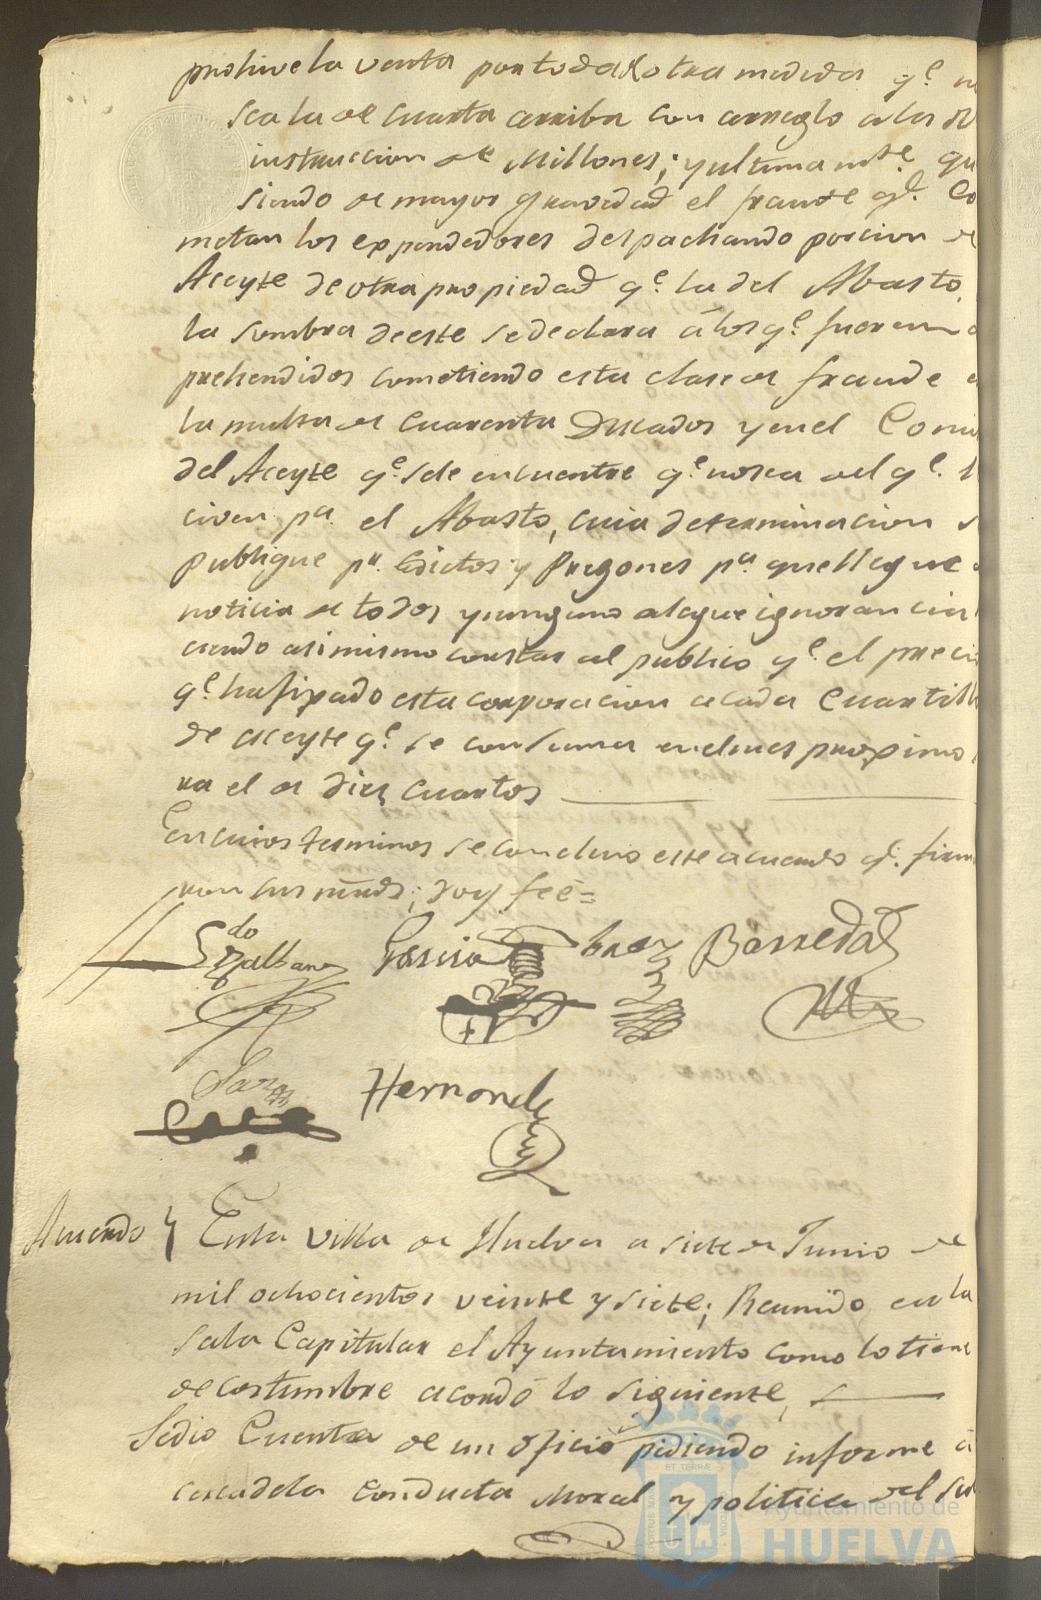 prohive la venta por toda otra medida q.e no
sea la de cuarta arriba con arreglo a las de
instruccion de Millones; y ultimam.te qu
siendo de mayor gravedad el fraude q.e Co
metan los expendedores despachando porcion de
Aceyte de otra propiedad q.e la del Abasto,
la sombra de este se declara á los q.e fueren a
prehendidos cometiendo esta clase de fraude en
la multa de Cuarenta Ducados y en el Comi
del Aceyte q.e se le encuentre q.e no sea del q.e
civen p.a el Abasto, cuia determinacion se
publique p.r Edictos y Pregones p.a que llegue a
noticia de todos y ninguno alegue ignorancia
ciendo asimismo constar al publico q.e el preci
q.e ha fixado esta corporacion a cada Cuartill
de aceyte q.e se consuma en el mes proximo
ra el de diez cuartos
En cuios terminos se concluio este acuerdo q.e firm
ron sus mrds; doy feé=
Garcia Barreda
Hernandz
Acuerdo En la Villa de Huelva a siete de Junio de
mil ochocientos veinte y siete; Reunido en la
sala Capitular el Ayuntamiento como lo tiene
de costumbre acordó lo siguiente,
Se dio Cuenta de un oficio pidiendo informe a
cerca de la Conducta Moral y politica del Su
Ayuntamiento de
HUELVA